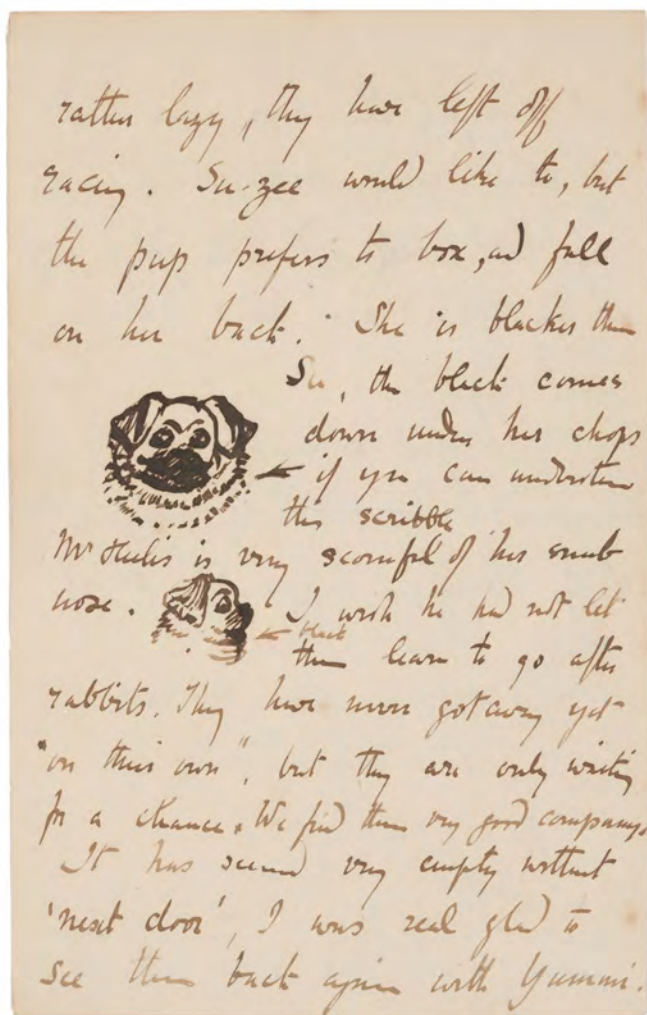 rather lazy, they have left off
racing. Su-zee would like to, but
the pup prefers to box, and fall
on her back. She is blacker than
Su, the black comes
down under her chops
if you can understand
this scribble
Mr Heelis is very scornful of his snub
nose. I wish he had not let
black
them learn to go after
rabbits. They have never got away yet
"on their own", but they are only waiting
for a chance. We find them very good company.
It has seemed very empty without
'next door', I was real glad to
see them back again with Yummi.